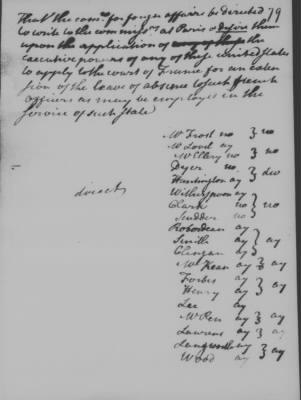 That the comee for foreign affairs be directed 79
to write to the commissrs at Paris & desire them
upon the application of any of the the
executive powers of any of these United States
to apply to the court of France for an exten
sion of the leave of absence to such french
officers as may be employed in the
service of such State
Mr Frost no } no
Mr Lovel ay
Mr Ellery no } no
Dyer no
Huntington ay } div
Witherspoon ay
Clark no } no
Scudder no
direct
Roberdeau ay
Smith ay } ay
Clingan ay
McKean ay } ay
Forbes ay
Henry ay } ay
Lee ay
Mr Pen ay } ay
Laurens ay } ay
Langworthy ay
Wood ay } ay